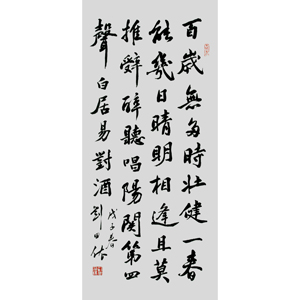 百歲無多時壯健一春
能幾日晴明相逢且莫
推辭醉聽唱陽關第四
聲 白居易對酒
戊子春 劉